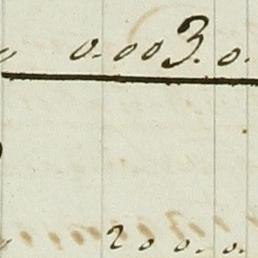 0.003.0.
200.0.